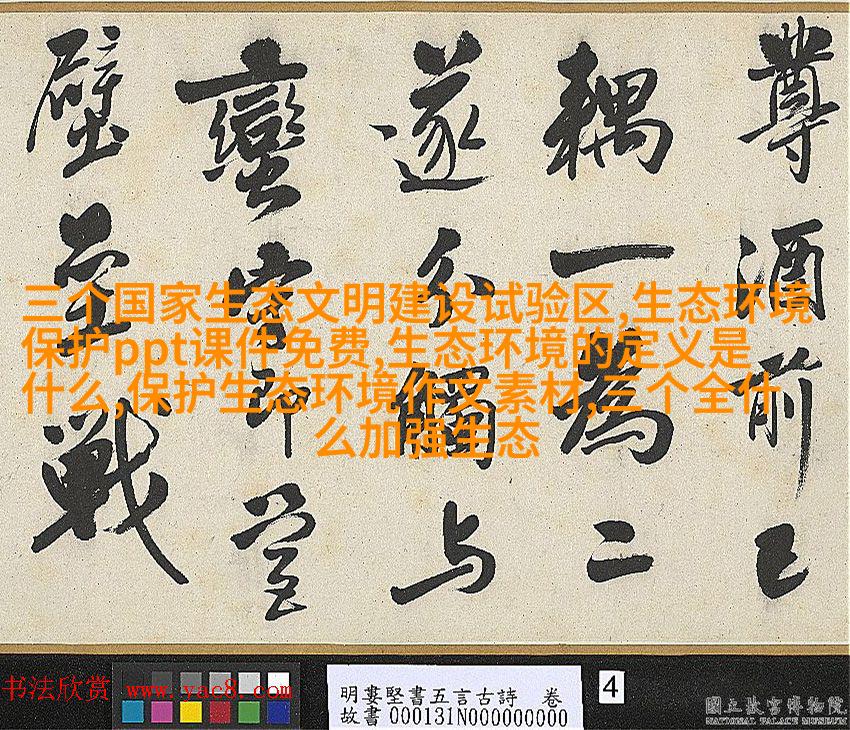 尊酒前已
耦一為二
遂分觸与
蠻即營
壁壘戰
三个国家生态文明建设试验区,生态环境
保护ppt课件免费,生态环境的定义是
什么,保护生态环境作文素材,三个全什
么加强生态
书法欣赏 www.yac8.com
明婁堅書五言古詩 卷
故書000131N000000000
4
國立故宮博物院
NATIONAL PALACE MUSEUM